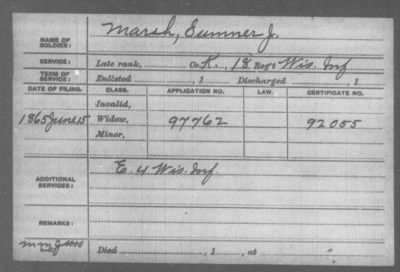 NAME OF SOLDIER: Marsh, Sumner J.
SERVICE: Late rank, Co. K, 18 Reg't Wis. Inf
TERM OF SERVICE: Enlisted , 1 Discharged , 1
DATE OF FILING. CLASS. APPLICATION NO. LAW. CERTIFICATE NO.
Invalid,
1865 June 15 Widow, 97762 92055
Minor,
ADDITIONAL SERVICES: E. 4 Wis. Inf.
REMARKS:
Died , 1 , at